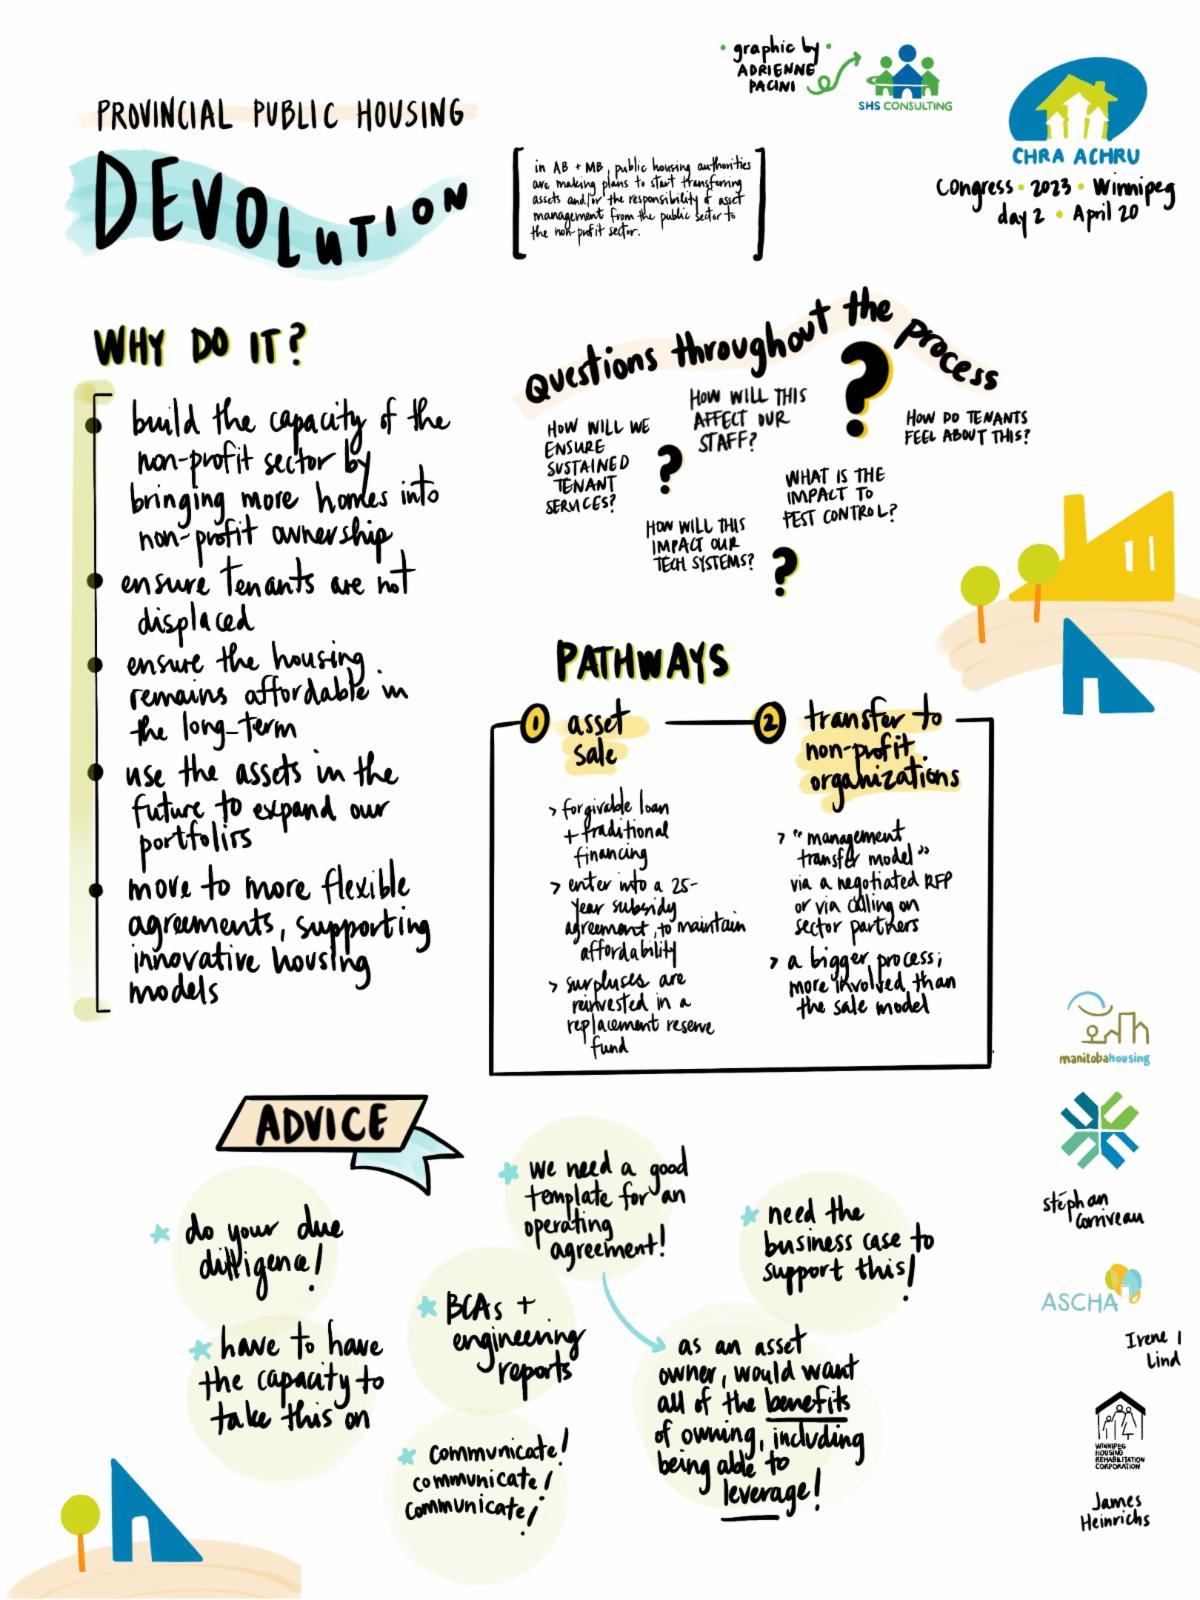 • graphic by •
ADRIENNE
PACINI
SHS CONSULTING
CHRA ACHRU
Congress • 2023 • Winnipeg
day 2 • April 20
PROVINCIAL PUBLIC HOUSING
DEVOLUTION
in AB + MB, public housing authorities
are making plans to start transferring
assets and/or the responsibility of asset
management from the public sector to
the non-profit sector.
WHY DO IT?
build the capacity of the
non-profit sector by
bringing more homes into
non-profit ownership
ensure tenants are not
displaced
ensure the housing
remains affordable in
the long-term
use the assets in the
future to expand our
portfolios
move to more flexible
agreements, supporting
innovative housing
models
Questions throughout the process
?
HOW WILL WE
ENSURE
SUSTAINED
TENANT
SERVICES?
?
HOW WILL THIS
AFFECT OUR
STAFF?
HOW DO TENANTS
FEEL ABOUT THIS?
WHAT IS THE
IMPACT TO
PEST CONTROL?
HOW WILL THIS
IMPACT OUR
TECH SYSTEMS?
?
PATHWAYS
1 asset
sale
> forgivable loan
+ traditional
financing
> enter into a 25-
year subsidy
agreement, to maintain
affordability
> surpluses are
reinvested in a
replacement reserve
fund
2 transfer to
non-profit
organizations
> "management
transfer model"
via a negotiated RFP
or via calling on
sector partners
> a bigger process;
more involved than
the sale model
ADVICE
do your due
dilligence!
have to have
the capacity to
take this on
we need a good
template for an
operating
agreement!
BCAs +
engineering
reports
communicate!
communicate!
communicate!
need the
business case to
support this!
as an asset
owner, would want
all of the benefits
of owning, including
being able to
leverage!
manitobahousing
stéphan
Corriveau
ASCHA
Irene
Lind
WINNIPEG
HOUSING
REHABILITATION
CORPORATION
James
Heinrichs